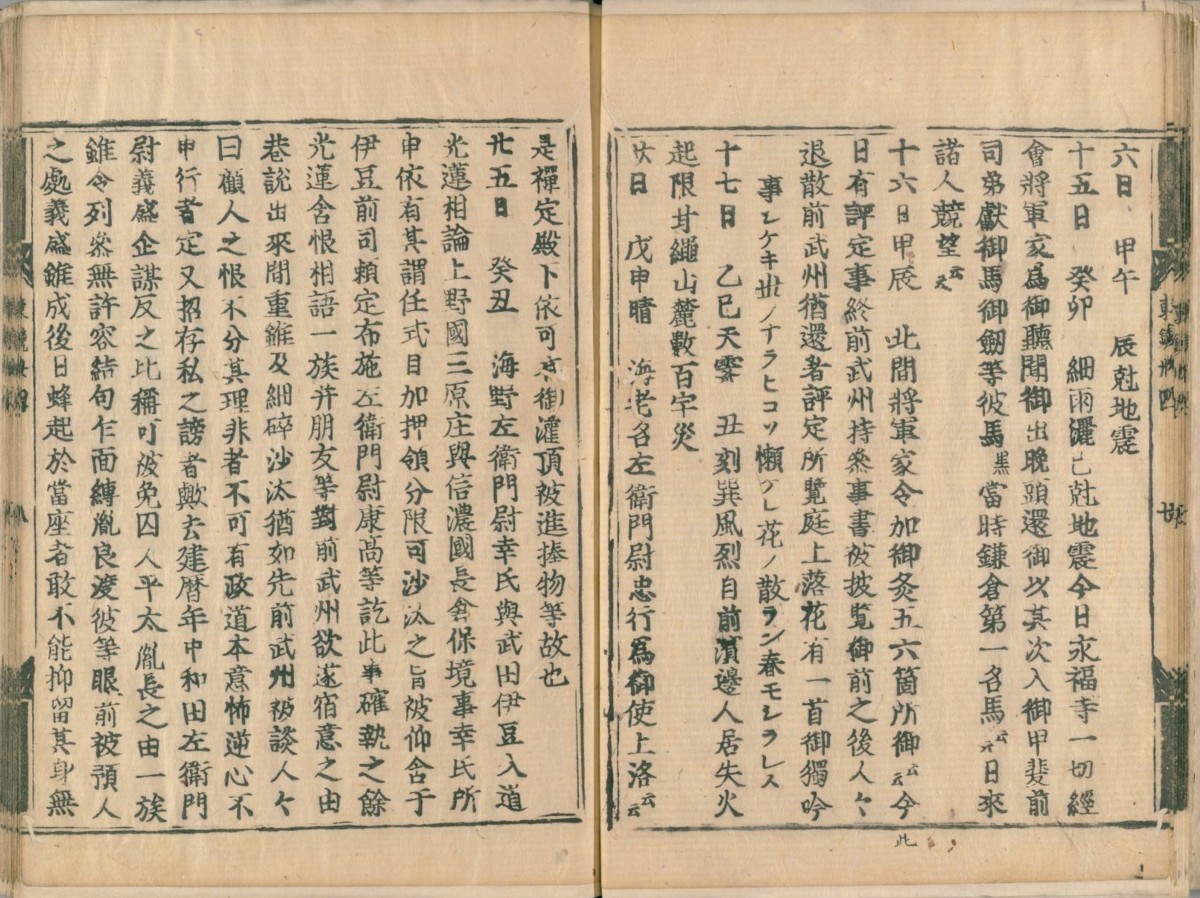 六日 甲午 辰尅地震
十五日 癸卯 細雨灑巳尅地震今日永福寺一切經
會將軍家爲御聽聞御出晩頭還御以其次入御甲斐前
司弟獻御馬御劔等彼馬黒當時鎌倉第一名馬云々日來
諸人競望云々
十六日甲辰 此間將軍家令加御灸五六箇所御云云今
日有評定事終前武州持參事書被披覧御前之後人々
退散前武州猶還著評定所覧庭上落花有一首御獨吟
事シケキ世ノナラヒコソ懶ケレ花ノ散ラン春モシラレス
十七日 乙巳天霽 丑刻巽風烈自前濱邊人居失火
起限甘縄山麓數百宇災
廿日 戊申晴 海老名左衛門尉忠行爲御使上洛云云
此
是禪定殿卜依可有御灌頂被進捧物等故也
廿五日 癸丑 海野左衛門尉幸氏與武田伊豆入道
光蓮相論上野國三原庄與信濃國長倉保境事幸氏所
申依有其謂任式目加押領分限可沙汰之旨被仰含于
伊豆前司頼定布施左衛門尉康高等訖此事確執之餘
光蓮含恨相語一族并朋友等對前武州欲遂宿意之由
巷説出來聞重雖及細碎沙汰猶如先前武州被談人々
曰顧人之恨不分其理非者不可有政道本意怖逆心不
申行者定又招存私之謗者歟去建暦年中和田左衛門
尉義盛企謀反之比稱可被免囚人平太胤長之由一族
雖令列參無許容結句乍面縛胤良渡彼等眼前被預人
之處義盛雖成後日蜂起於當座者敢不能抑留其身無